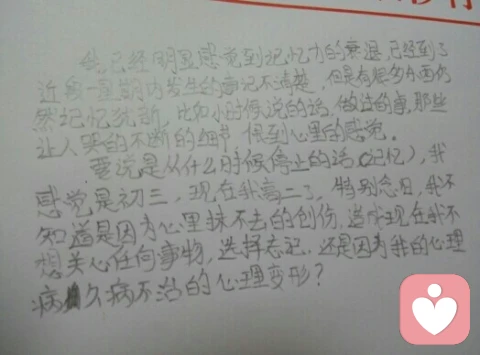 我已经明显感觉到记忆力的衰退,已经到了
近一星期内发生的事记不清楚,但是有很多东西仍
然记忆犹新,比如小时候说的话,做过的事,那些
让人哭的不断的细节,伤到心里的感觉。
要说是从什么时候停止的话(记忆),我
感觉是初三,现在我高二了,特别忘旧,我不
知道是因为心里抹不去的创伤,造成现在我不
想关心任何事物,选择忘记,还是因为我的心理
病久病不治的心理变形?